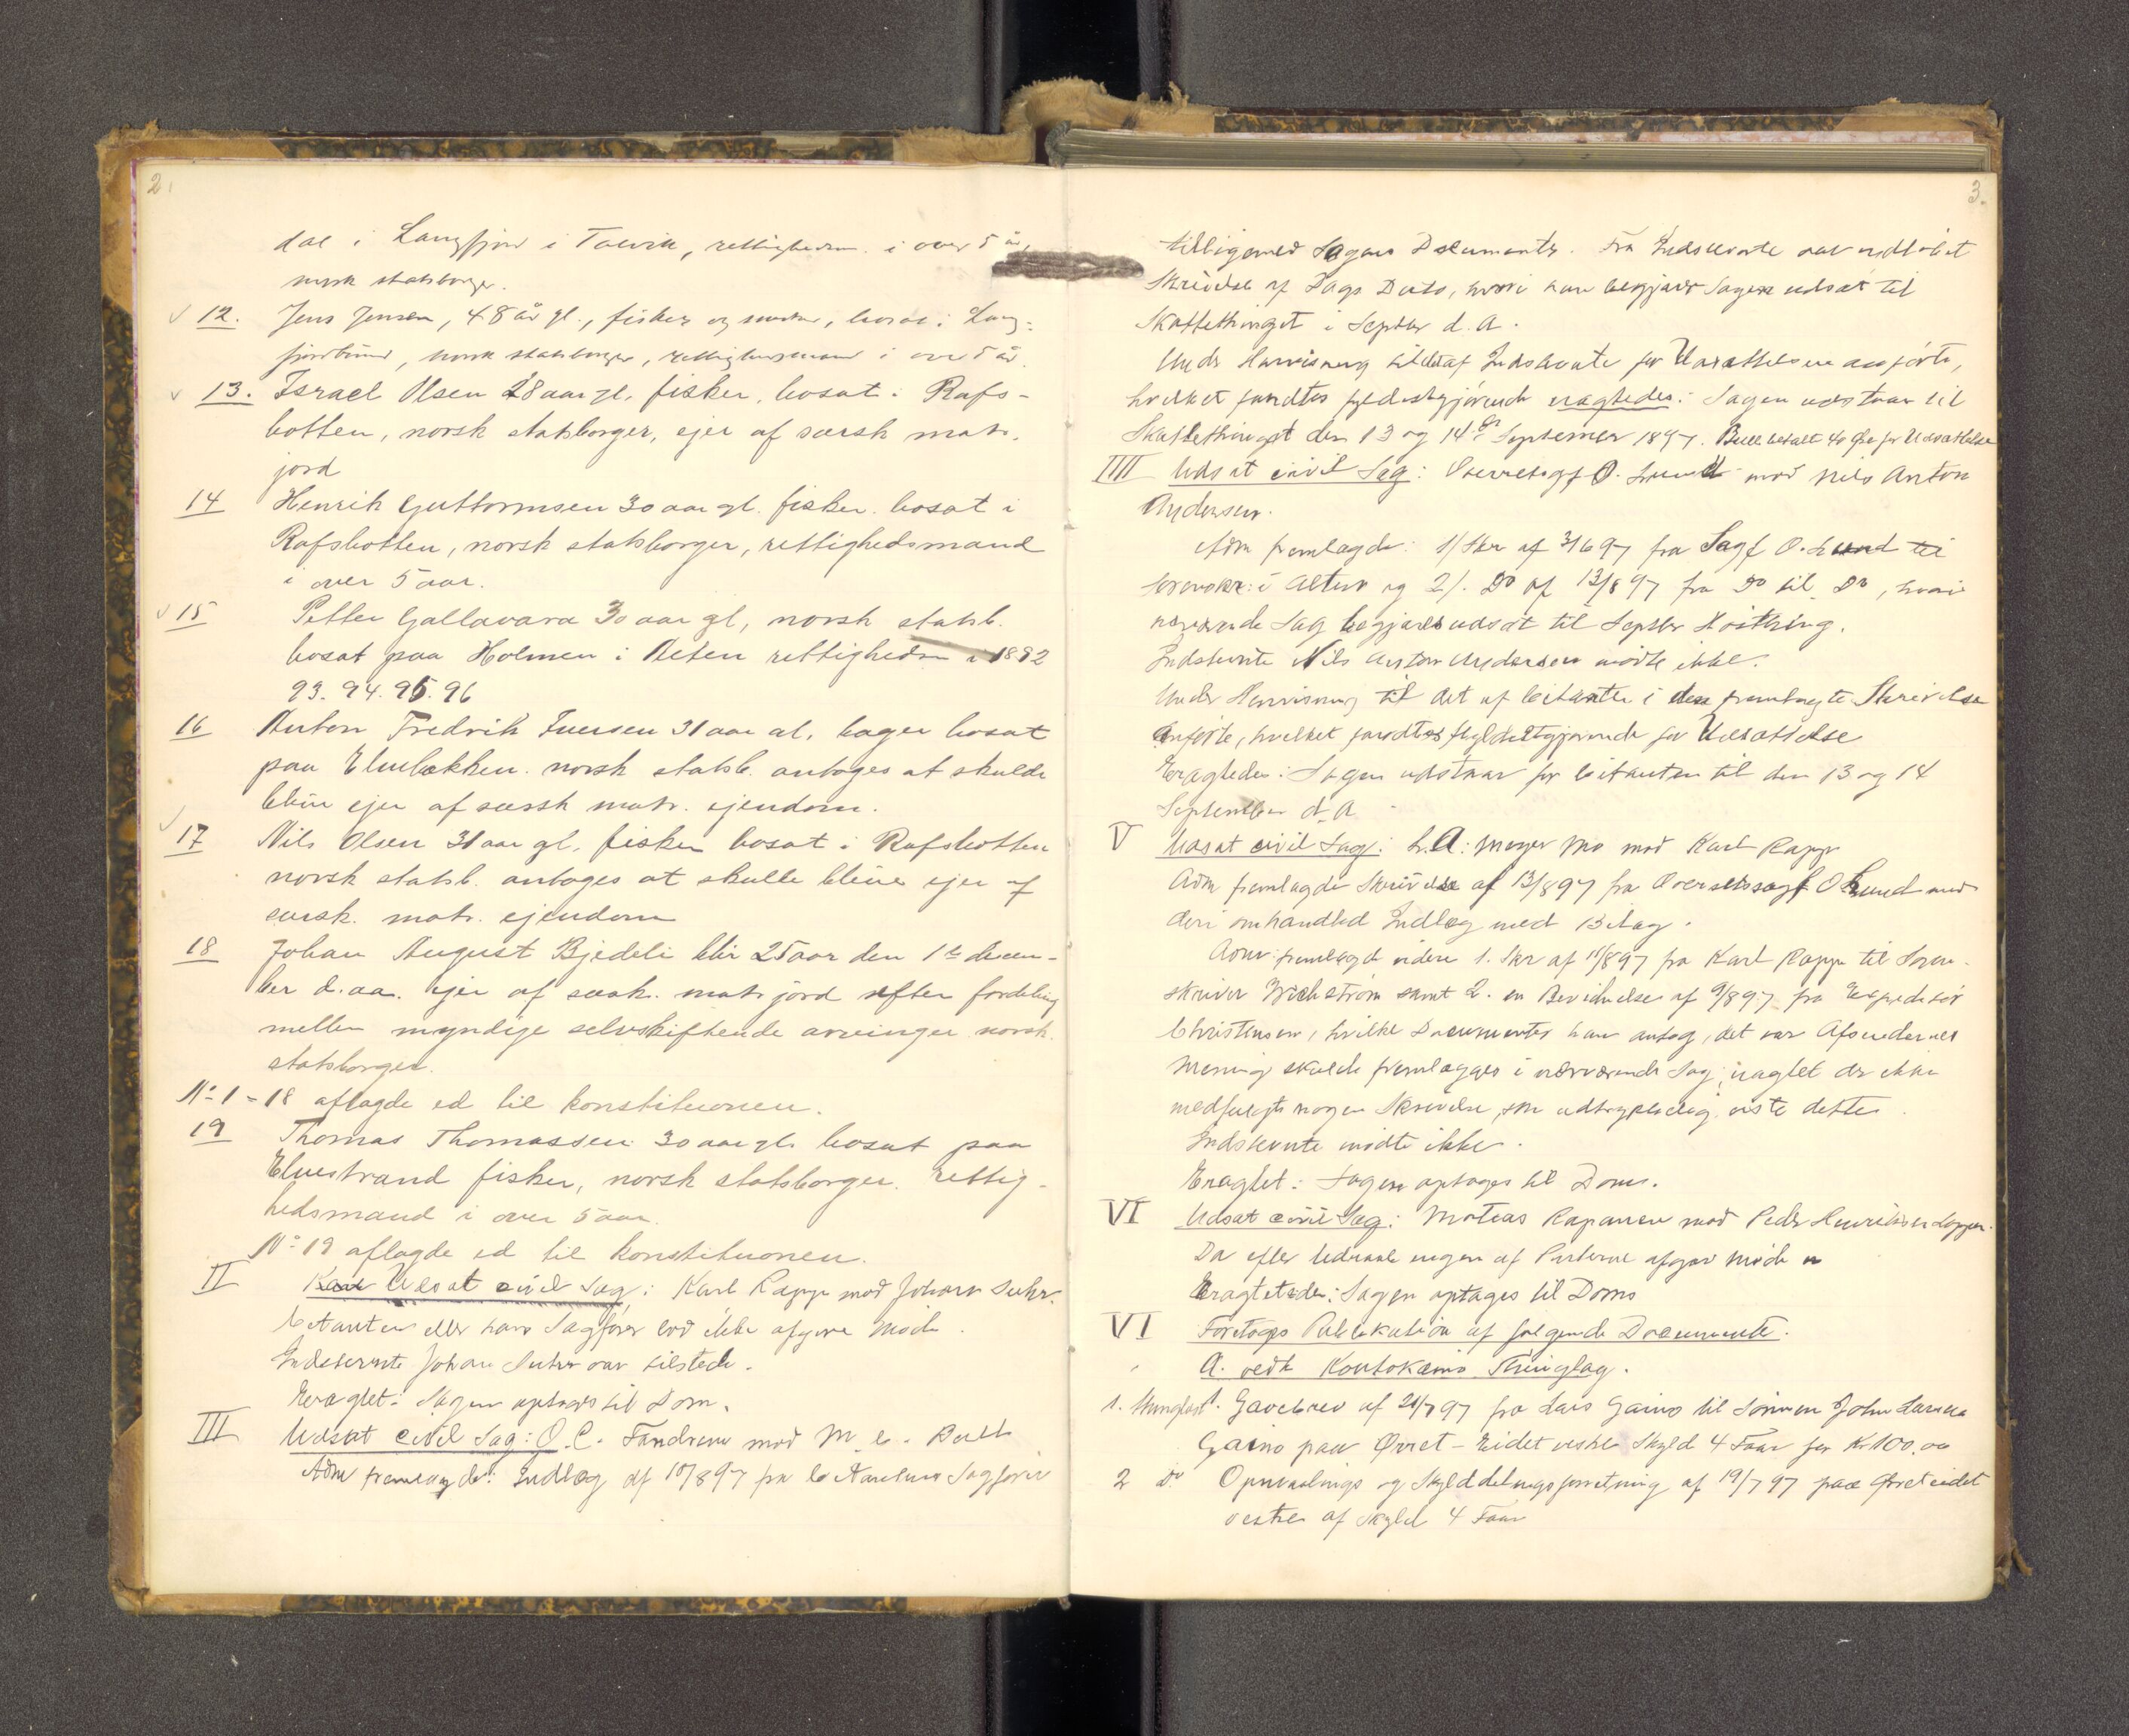 2.
dal i Langfjord i Talvik, rettighedsm. i over 5 år,
norsk statsborger.
12. Jens Jensen, 48 år gl., fisker og, bosat i Lang-
fjordbund, norsk statsborger, rettighedsmand i over 5 år.
13. Israel Olsen 28 aar gl. fisker, bosat i Rafs-
botten, norsk statsborger, ejer af særsk. matr.
jord
14 Henrik Guttormsen 30 aar gl. fisker. bosat i
Rafsbotten, norsk statsborger, rettighedsmand
i over 5 aar.
15 Petter Gallavara 30 aar gl, norsk statsb.
bosat paa Holmen i rettighedsm i 1892
93. 94. 95. 96
16 Anton Fredrik Iversen 31 aar gl, bager bosat
paa Elvebakken. norsk statsb. antages at skulde
blive ejer af særsk matr. ejendom.
17 Nils Olsen 31 aar gl, fisker bosat i Rafsbotten
norsk statsb. antages at skulle blive ejer af
særsk. matr. ejendom
18 Johan August Bjedeli blir 25 aar den 1te decem-
ber d. aa. ejer af særsk. matr jord efter fordeling
mellem myndige selvskiftende arvinger norsk
statsborger.
No 1-18 aflagde ed til konstitutionen.
19 Thomas Thomassen 30 aar gl. bosat paa
Elvestrand fisker, norsk statsborger. rettig-
hedsmand i over 5 aar.
No 19 aflagde ed til konstitutionen.
II Karl Udsat civil Sag: Karl Rapp mod Johan Suhr.
Citanten eller hans Sagfører lod ikke afgive Møde.
Indstevnte Johan Suhr var tilstede.
Eragtet: Sagen optages til Dom.
III Udsat civil Sag: O. C. Fandrem mod M. C. Bull
Adm fremlagde: Indlæg af 10/8 97 fra Citantens Sagfører
3.
tilligemed Sagens Documenter. Fra Indstevnte var indløbet
Skrivelse af Dags Dato, hvori han begjærer Sagen udsat til
Skattethinget i Septbr d. A.
Under Henvisning til det af Indstevnte for Udsættelsen anførte,
hvilket fandtes fyldestgjørende eragtedes: Sagen udstaar til
Skattethinget den 13 og 14de September 1897. Bull betalt 40 Øre for Udsættelse
IIII Udsat civil Sag: Overretssagf O. Lund mod Nils Anton
Andersen.
Adm fremlagde: 1/ Skr af 3/6 97 fra Sagf O. Lund til
Sorenskr: i Alten og 2/. Do af 13/8 97 fra Do til Do, hvori
nærværende Sag begjæres udsat til Septbr Høstthing.
Indstevnte Nils Anton Andersen mødte ikke.
Under Henvisning til det af Citanten i den fremlagte Skrivelse
anførte, hvilket fandtes fyldestgjørende for Udsættelse
Eragtedes: Sagen udstaar for Citanten til den 13 og 14
September d. A.
V Udsat civil Sag: L. A: Meyer Mo mod Karl Rapp
Adm fremlagde Skrivelse af 13/8 97 fra Overretssagf O Lund med
deri omhandled Indlæg med Bilag.
Adm: fremlagde videre 1. Skr af 11/8 97 fra Karl Rapp til Soren-
skriver Wickstrøm samt 2. en Bevidnelse af 9/8 97 fra Expeditør
Christensen, hvilke Documenter han antog, det var Afsenderens
Mening skulde fremlægges i nærværende Sag, uagtet der ikke
medfulgte nogen Skrivelse, som udtrykkelig viste dette.
Indstevnte mødte ikke.
Eragtet: Sagen optages til Doms.
VI Udsat civil Sag: Matias Rapanen mod Peder Henriksen Loppen.
Da efter Udraab ingen af Parterne afgav Møde
Eragtetedes: Sagen optages til Doms
VI Foretoges Publikation af følgende Documenter.
A. vedk Koutokeino Thinglag.
1. Thinglæst. Gavebrev af 21/7 97 fra Lars Gaino til Sønnen John Larsen
Gaino paa Øvret-Eidet vestre Skyld 4 Faar for Kr 100,00
2 Do Opmaalings og Skylddelingsforretning af 19/7 97 paa Øvreteidet
vestre af Skyld 4 Faar